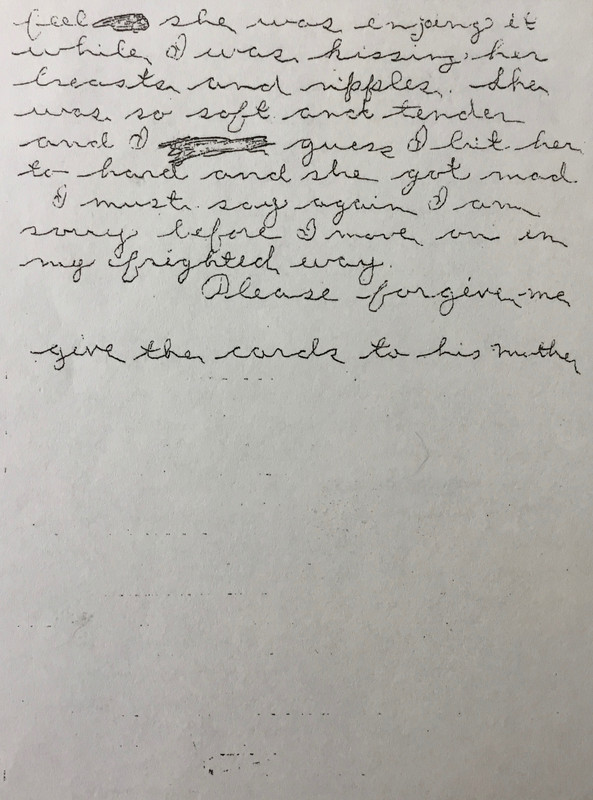 feel she was enjoing it
while I was kissing her
breasts and nipples. She
was so soft and tender
and I guess I bit her
to hard and she got mad.
I must say again I am
sorry before I move on in
my frighted way.
Please forgive me
give the cards to his mother